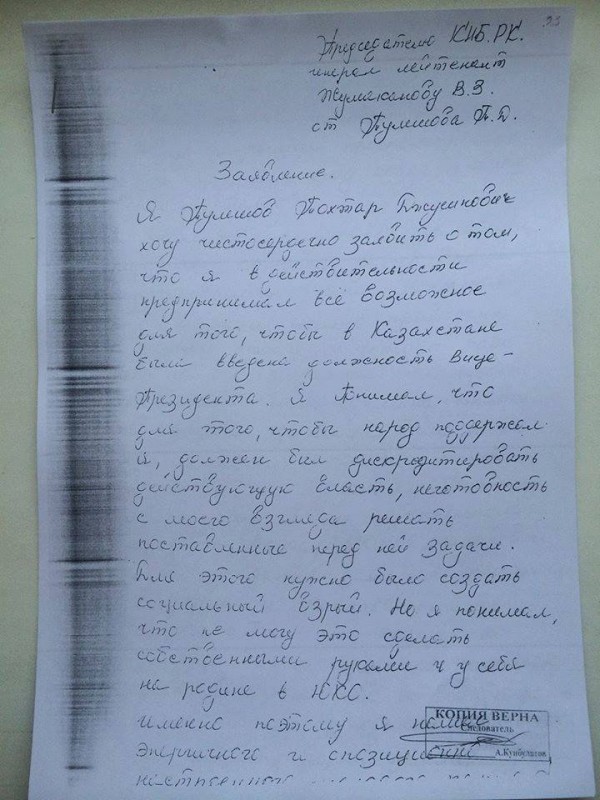 Председателю КНБ.РК.
генерал лейтенант
Жумаканову В.З.
от Тулешова Т.Д.
Заявление.
Я Тулешов Тохтар
хочу чистосердечно заявить о том,
что я в действительности
предпринимал всё возможное
для того, чтобы в Казахстане
была введена должность Вице-
Президента. Я понимал, что
для того, чтобы народ поддержал
я, должен был дискредитировать
действующую власть, неготовность
с моего взгляда решать
поставленные перед ней задачи.
Для этого нужно было создать
социальный взрыв. Но я понимал,
что не могу это сделать
собственными руками и у себя
на родине в ЮКО.
именно поэтому я
энергичного и
КОПИЯ ВЕРНА
Следователь
А.Кунбулатов